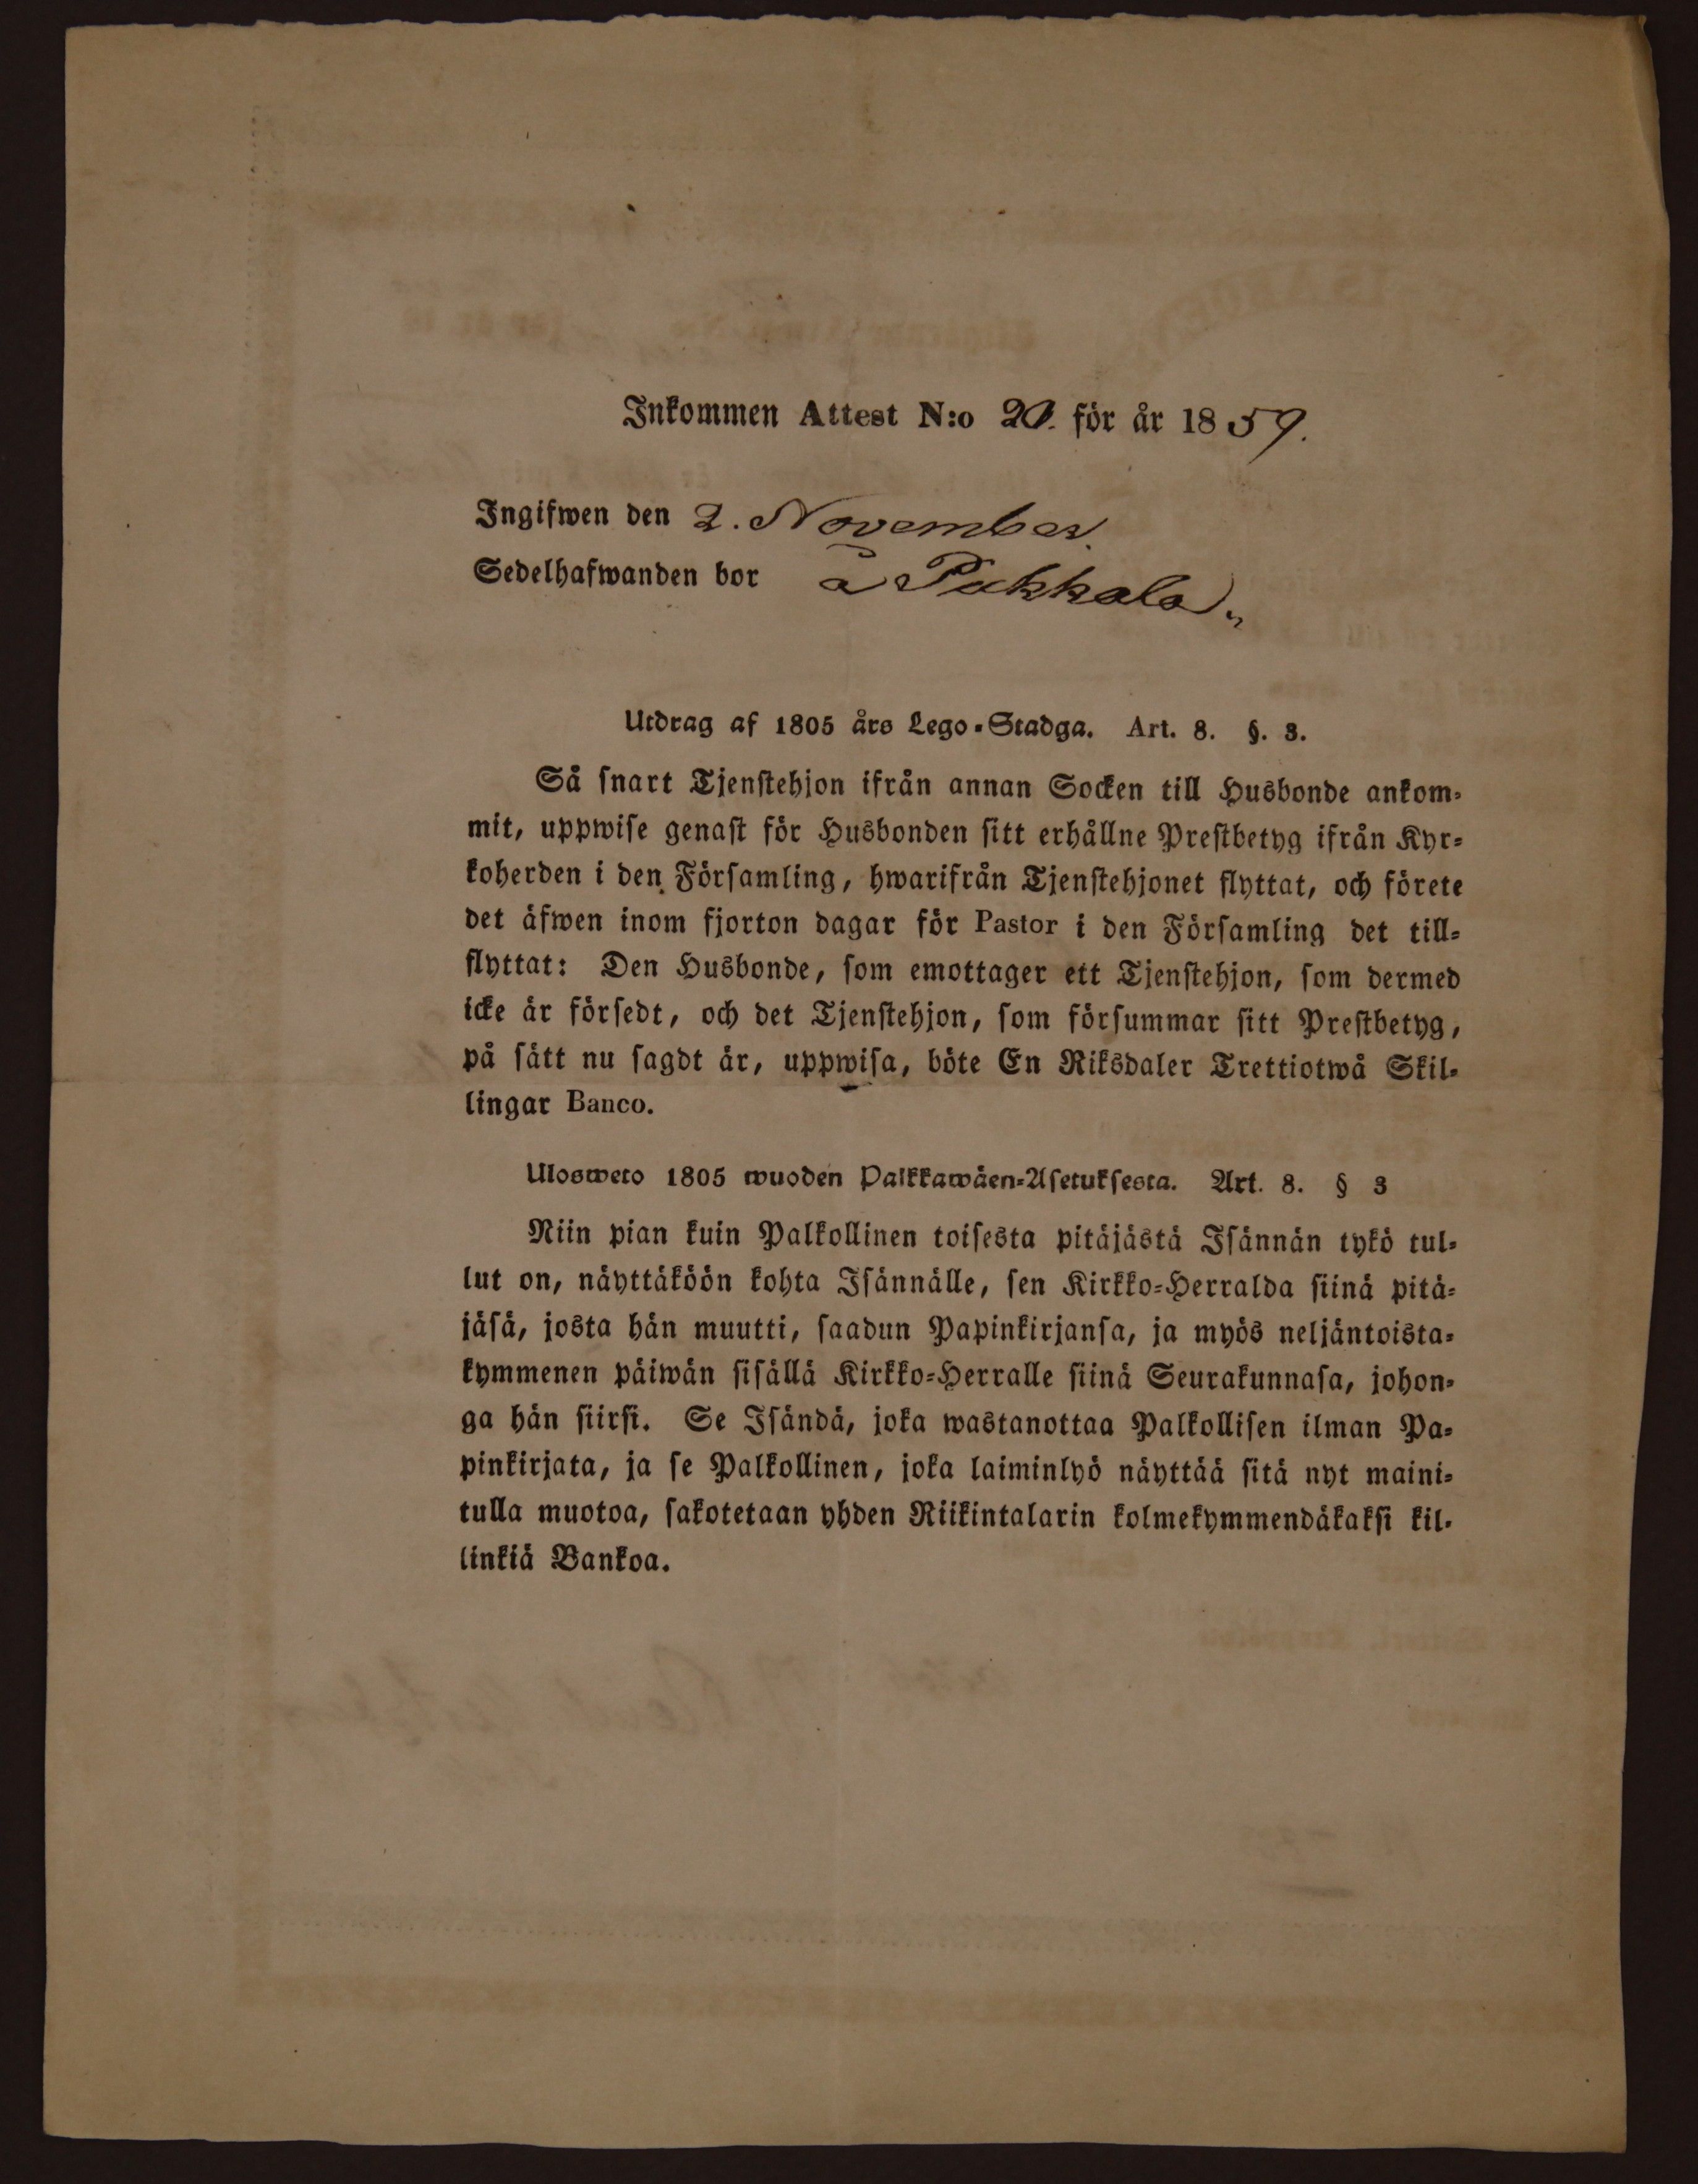 Inkommen Attest N:o 20. för år 1859.
Ingifwen den 2. November.
Sedelhafwanden bor å Pukkala
Utdrag af 1805 års Lego-Stadga. Art. 8. §. 3.
Så snart Tjenstehjon ifrån annan Socken till Husbonde ankom-
mit, uppwise genast för Husbonden sitt erhållne Prestbetyg ifrån Kyr-
koherden i den Församling, hwarifrån Tjenstehjonet flyttat, och förete
det äfwen inom fjorton dagar för Pastor i den Församling det till-
flyttat: Den Husbonde, som emottager ett Tjenstehjon, som dermed
icke är försedt, och det Tjenstehjon, som försummar sitt Prestbetyg,
på sätt nu sagdt är, uppwisa, böte En Riksdaler Trettiotwå Skil-
lingar Banco.
Ulosweto 1805 wuoden Palkkawäen-Asetuksesta. Art. 8. § 3
Niin pian kuin Palkollinen toisesta pitäjästä Isännän tykö tul-
lut on, näyttäköön kohta Isännälle, sen Kirkko-Herralda siinä pitä-
jäsä, josta hän muutti, saadun Papinkirjansa, ja myös neljäntoista-
kymmenen päiwän sisällä Kirkko-Herralle siinä Seurakunnasa, johon-
ga hän siirsi. Se Isändä, joka wastanottaa Palkollisen ilman Pa-
pinkirjata, ja se Palkollinen, joka laiminlyö näyttää sitä nyt maini-
tulla muotoa, sakotetaan yhden Riikintalarin kolmekymmendäkaksi kil-
linkiä Bankoa.